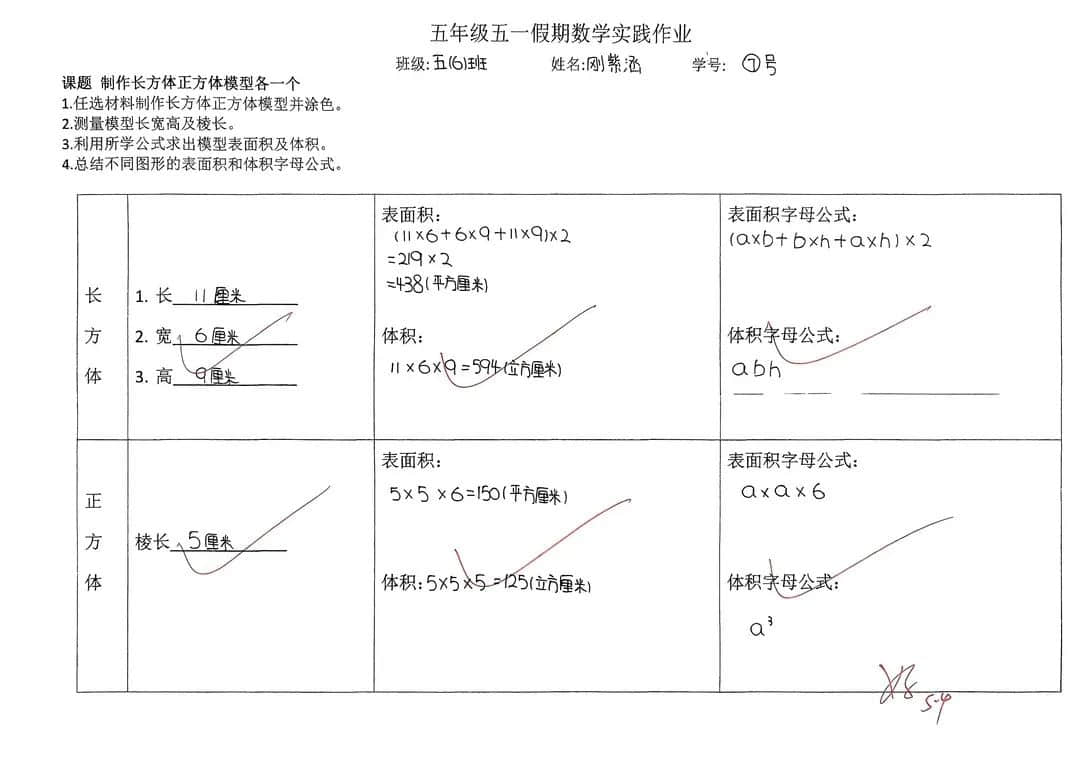 五年级五一假期数学实践作业
班级:五(6)班 姓名:刚紫涵 学号: ⑦号
课题 制作长方体正方体模型各一个
1.任选材料制作长方体正方体模型并涂色。
2.测量模型长宽高及棱长。
3.利用所学公式求出模型表面积及体积。
4.总结不同图形的表面积和体积字母公式。
长方体
1. 长 11厘米
2. 宽 6厘米
3. 高 9厘米
表面积:
(11×6+6×9+11×9)×2
=219×2
=438(平方厘米)
体积:
11×6×9=594(立方厘米)
表面积字母公式:
(a×b+b×h+a×h)×2
体积字母公式:
abh
正方体
棱长 5厘米
表面积:
5×5×6=150(平方厘米)
体积:5×5×5=125(立方厘米)
表面积字母公式:
a×a×6
体积字母公式:
a³
5-4